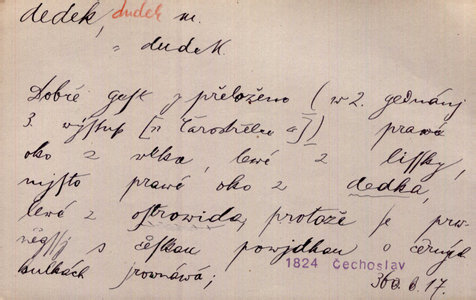 dedek, dudek m.
" dudek.
Dobré gest y přeloženo (w 2. gednánj
3. weystup [z Čarostřelce a]) prawé
oko z wlka, lewé z lissky,
mjsto prawé oko z dedka,
lewé z ostrowida, protože je prw
něgssj s českau powjdkau o černých
kulkách srownáwá;
1824 Čechoslav
360. 6. 17.